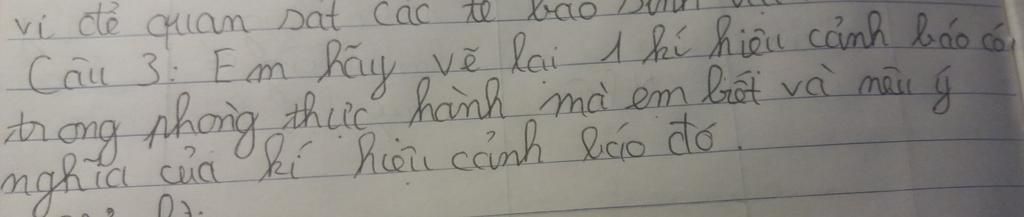 vi để quan sát các tế bào sinh
Câu 3: Em hãy vẽ lại 1 kí hiệu cảnh báo có
trong phòng thực hành mà em biết và nêu ý
nghĩa của kí hiệu cảnh báo đó.